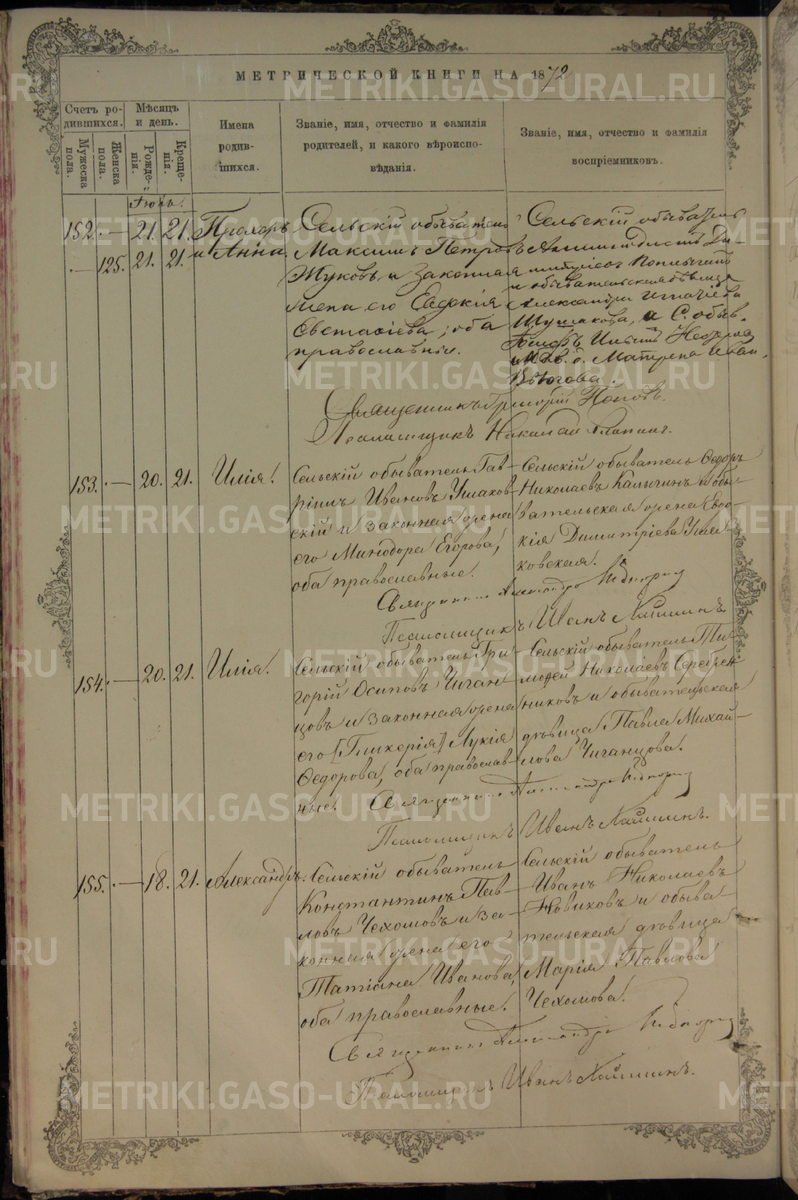 МЕТРИЧЕСКОЙ КНИГИ НА 1872
Счетъ родившихся.
Мужеска пола.
Женска пола.
Мѣсяцъ и день.
Рожденія.
Крещенія.
Имена родившихся.
Званіе, имя, отчество и фамилія родителей, и какого вѣроисповѣданія.
Званіе, имя, отчество и фамилія воспріемниковъ.
Іюль.
152. — 21. 21.
— 125. 21. 21. и Анна.
Сельскій обыватель
Максимъ Петровъ
Жуковъ и законная
жена его Евдокія
оба
православныя.
Сельскій обыватель
Александра Игнатіева
Матрена Иван.
Священникъ Григорій Поповъ.
Псаломщикъ Николай
153. — 20. 21. Илія.
Сельскій обыватель Гав-
ріилъ Ивановъ Ушаков-
скій и законная жена
его Минодора Егорова,
оба православные.
Сельскій обыватель Ѳедоръ
Николаевъ Калугинъ и обы-
вательская жена Евдо-
кія Димитріева Ушa-
ковская.
Священникъ Александръ
Псаломщикъ Иванъ
154. — 20. 21. Илія.
Сельскій обыватель Гри-
горій Осиповъ Чиган-
цовъ и законная жена
его [Гликерія] Лукія
Ѳедорова, оба православ-
ные.
Сельскій обыватель Ти-
моѳей Николаевъ Серебрен-
никовъ и обывательская
дѣвица Павла Михай-
лова Чиганцова.
Священникъ Александръ
Псаломщикъ Иванъ
155. — 18. 21. Александръ.
Сельскій обыватель
Константинъ Пав-
ловъ Чехомовъ и за-
конная жена его
Татіана Иванова,
оба православные.
Сельскій обыватель
Иванъ Николаевъ
Новиковъ и обыва-
тельская дѣвица
Марія Павлова
Чехомова.
Священникъ Александръ
Псаломщикъ Иванъ
METRIKI.GASO-URAL.RU